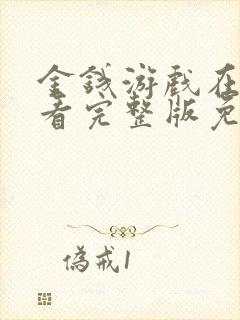 金钱游戏在
看完整版免
偽戒1